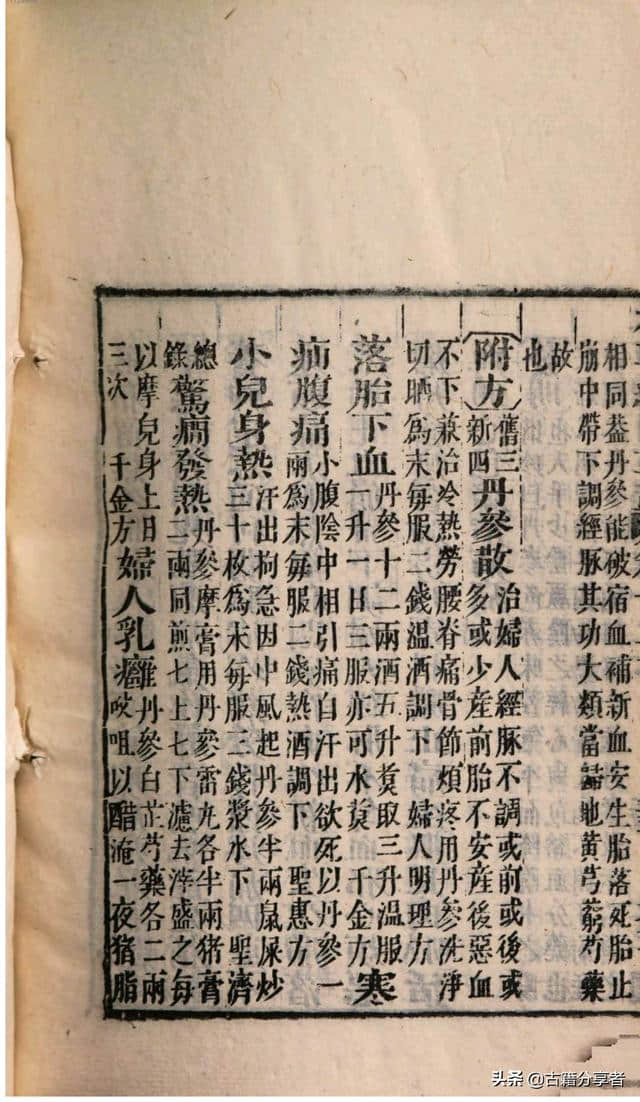 相同蓋丹參能破宿血補新血安生胎落死胎止
崩中帶下調經脉其功大類當歸地黃芎藭芍藥
故
也
附方 舊三
新四 丹參散 治婦人經脉不調或前或後或
多或少産前胎不安産後惡血
不下兼治冷熱勞腰脊痛骨節煩疼用丹參洗淨
切晒爲末每服二錢温酒調下 婦人明理方
落胎下血 丹參十二兩酒五升煑取三升温服
一升一日三服亦可水煑 千金方 寒
疝腹痛 小腹陰中相引痛白汗出欲死以丹參一
兩爲末每服二錢熱酒調下 聖惠方
小兒身熱 汗出拘急因中風起丹參半兩鼠屎炒
三十枚爲末每服三錢漿水下 聖濟
總
錄 驚癎發熱 丹參摩膏用丹參雷丸各半兩猪膏
二兩同煎七上七下濾去滓盛之每
以摩兒身上日
三次 千金方 婦人乳癰 丹參白芷芍藥各二兩
㕮咀以醋淹一夜猪脂
头条 @古籍分享者